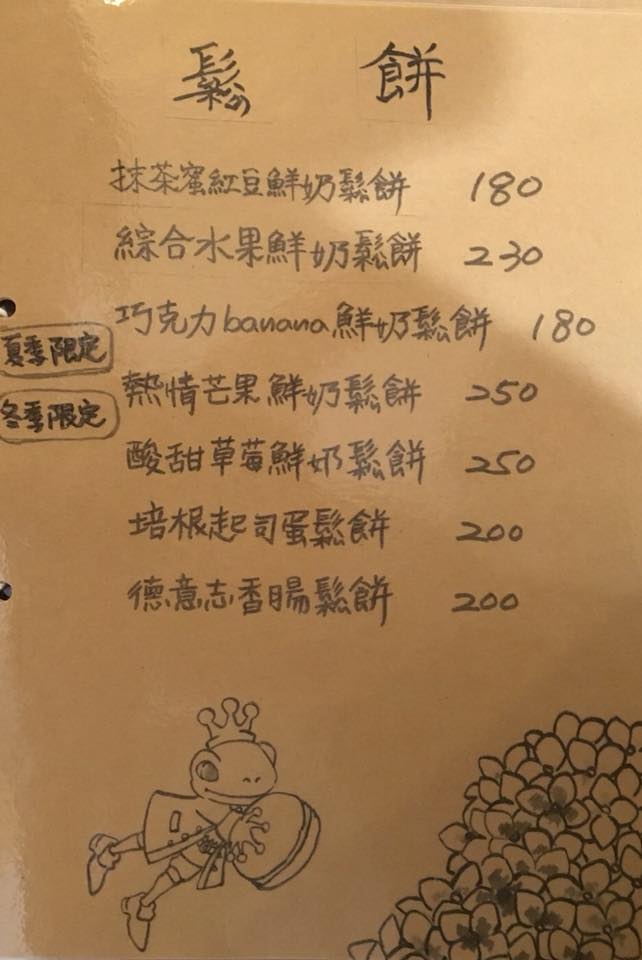 鬆餅
抹茶蜜紅豆鮮奶鬆餅 180
綜合水果鮮奶鬆餅 230
巧克力banana鮮奶鬆餅 180
夏季限定 熱情芒果鮮奶鬆餅 250
冬季限定 酸甜草莓鮮奶鬆餅 250
培根起司蛋鬆餅 200
德意志香腸鬆餅 200